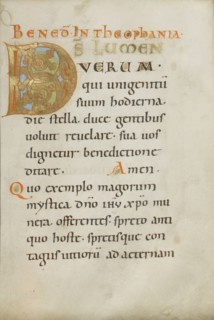 BENED̄ IN THEOPHANIA·
DS LUMEN
VERUM·
qui unigenitū
suum hodierna
die stella duce gentibus
voluit revelare· sua vos
dignetur benedictione
ditare· Amen·
Quo exemplo magorum
mystica dn̄o ihu xp̄o mu
nera offerentes· spreto anti
quo hoste· spretisque con
tagiis vitiorū ad aeternam